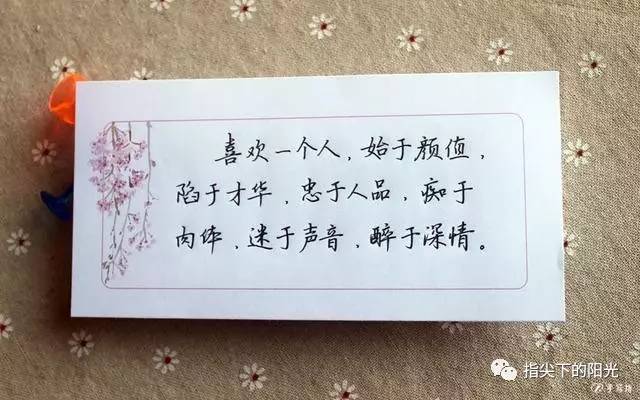 喜欢一个人，始于颜值，
陷于才华，忠于人品，痴于
肉体，迷于声音，醉于深情。
指尖下的阳光